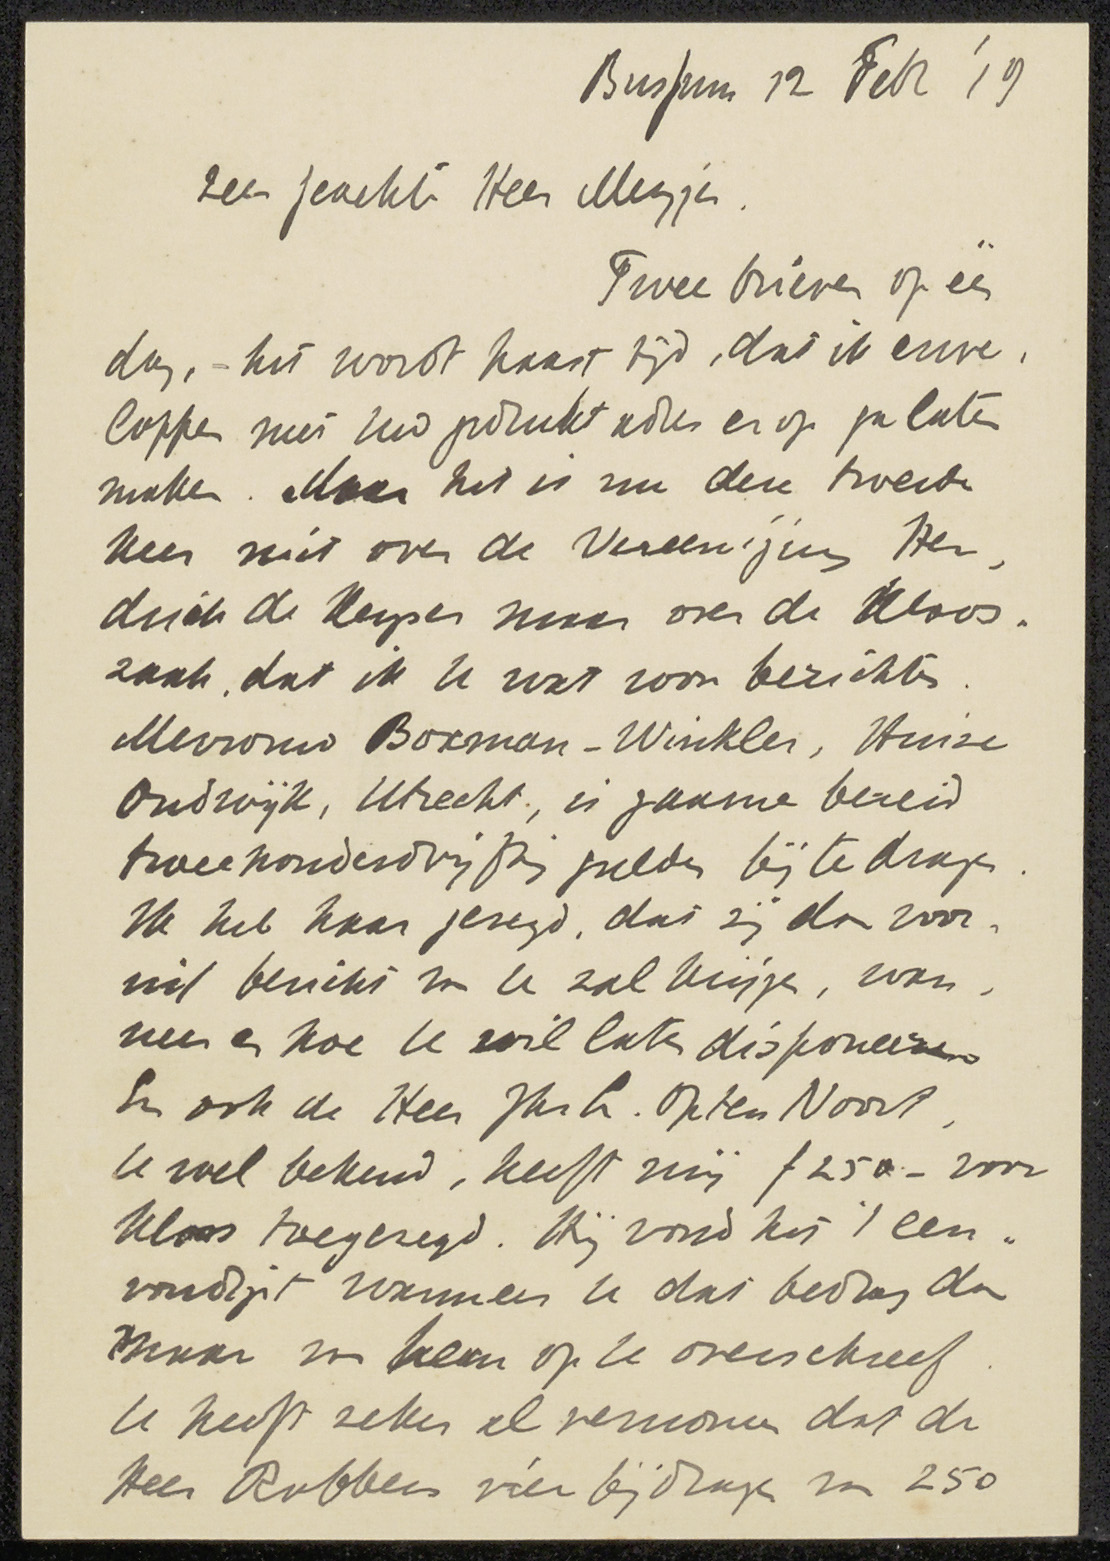 Bussum 12 Febr '19
Zeer geachte Heer
Twee brieven op één
dag, - het wordt haast tijd, dat ik enve-
loppen met uw gedrukt adres er op ga laten
maken. Maar het is nu deze tweede
keer niet over de Vereeniging Hen-
drick de Keyser maar over de Kloos-
zaak, dat ik U wat kon berichten.
Mevrouw Boxman-Winkler, Huize
Oudwijk, Utrecht, is gaarne bereid
tweehonderdvijftig gulden bij te dragen.
Ik heb haar gezegd, dat zij dan voor-
uit bericht van U zal krijgen, wan-
neer en hoe U wil laten disponeeren
En ook de Heer Jhr L. Op ten Noort,
U wel bekend, heeft mij f 250.- voor
Kloos toegezegd. Hij vond het 't een-
voudigst wanneer U dat bedrag dan
maar van hem op U overschreef.
U heeft zeker al vernomen dat de
Heer Robbers vier bijdragen van 250